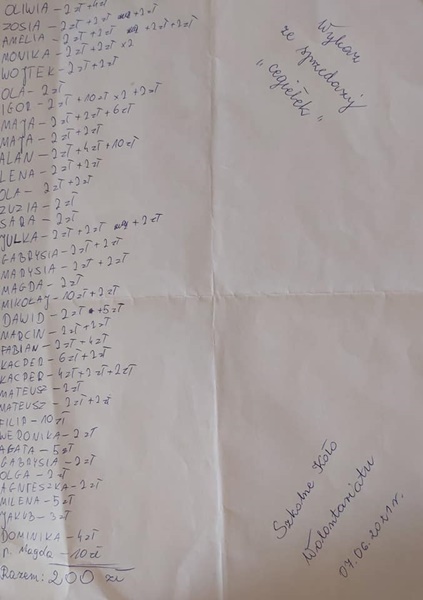 OLIWIA - 2 zł + 4 zł
ZOSIA - 2 zł + 2 zł + 2 zł
AMELIA - 2 zł + 2 zł + 2 zł + 2 zł
MONIKA - 2 zł + 2 zł x 2
WOJTEK - 2 zł + 2 zł
OLA - 2 zł
IGOR - 2 zł + 10 zł x 2 + 2 zł
MAJA - 2 zł + 2 zł + 6 zł
MAJA - 2 zł + 2 zł
ALAN - 2 zł + 4 zł + 10 zł
LENA - 2 zł + 2 zł
OLA - 2 zł + 2 zł
ZUZIA - 2 zł
SARA - 2 zł
JULKA - 2 zł + 2 zł + 2 zł
GABRYSIA - 2 zł + 2 zł
MARYSIA - 2 zł + 2 zł
MAGDA - 2 zł
MIKOŁAJ - 10 zł + 2 zł
DAWID - 2 zł + 5 zł
MARCIN - 2 zł + 2 zł
FABIAN - 2 zł + 4 zł
KACPER - 6 zł + 2 zł
KACPER - 4 zł + 2 zł + 2 zł
MATEUSZ - 2 zł
MATEUSZ - 2 zł + 2 zł
FILIP - 10 zł
WERONIKA - 2 zł
AGATA - 5 zł
GABRYSIA - 2 zł
OLGA - 2 zł
AGNIESZKA - 2 zł
MILENA - 5 zł
JAKUB - 3 zł
DOMINIKA - 4 zł
p. Magda - 10 zł
Razem: 200 zł
Wykaz
ze sprzedaży
"cegiełek"
Szkolne Koło
Wolontariatu
07.06.2021 r.